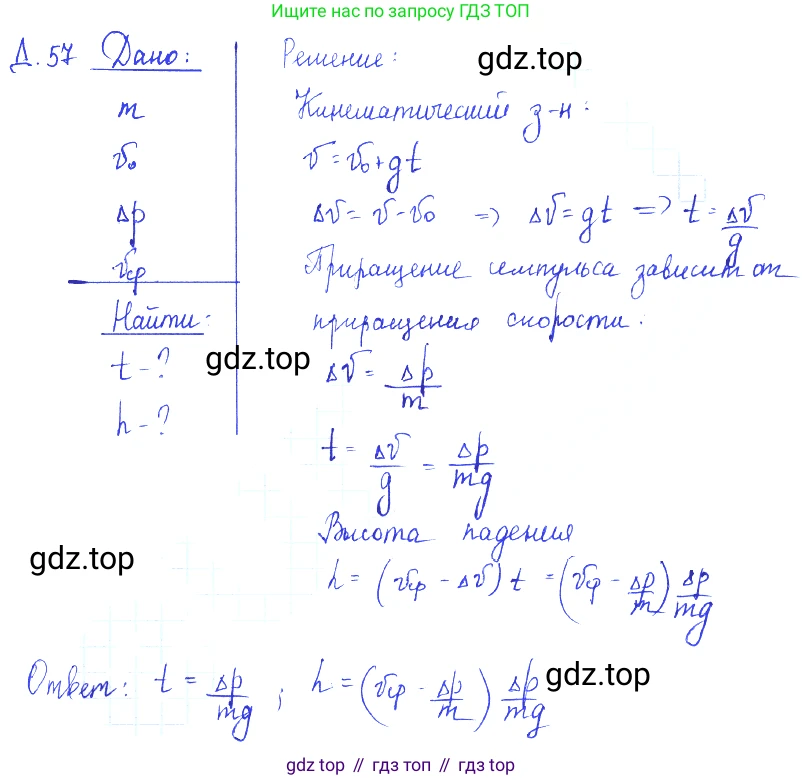 Ищите нас по запросу ГДЗ ТОП
Д.57 Дано: Решение: gdz.top
m Кинематический з-н:
v₀ v = v₀ + gt
Δp Δv = v - v₀ => Δv = gt => t = Δv/g
vср Приращение импульса зависит от
Найти: приращения скорости:
t - ? gdz.top Δv = Δp/m
h - ?
t = Δv/g = Δp/mg
Высота падения
gdz.top h = (vср - Δv) t = (vср - Δp/m) Δp/mg
Ответ: t = Δp/mg ; h = (vср - Δp/m) Δp/mg gdz.top
gdz top // гдз топ // gdz top